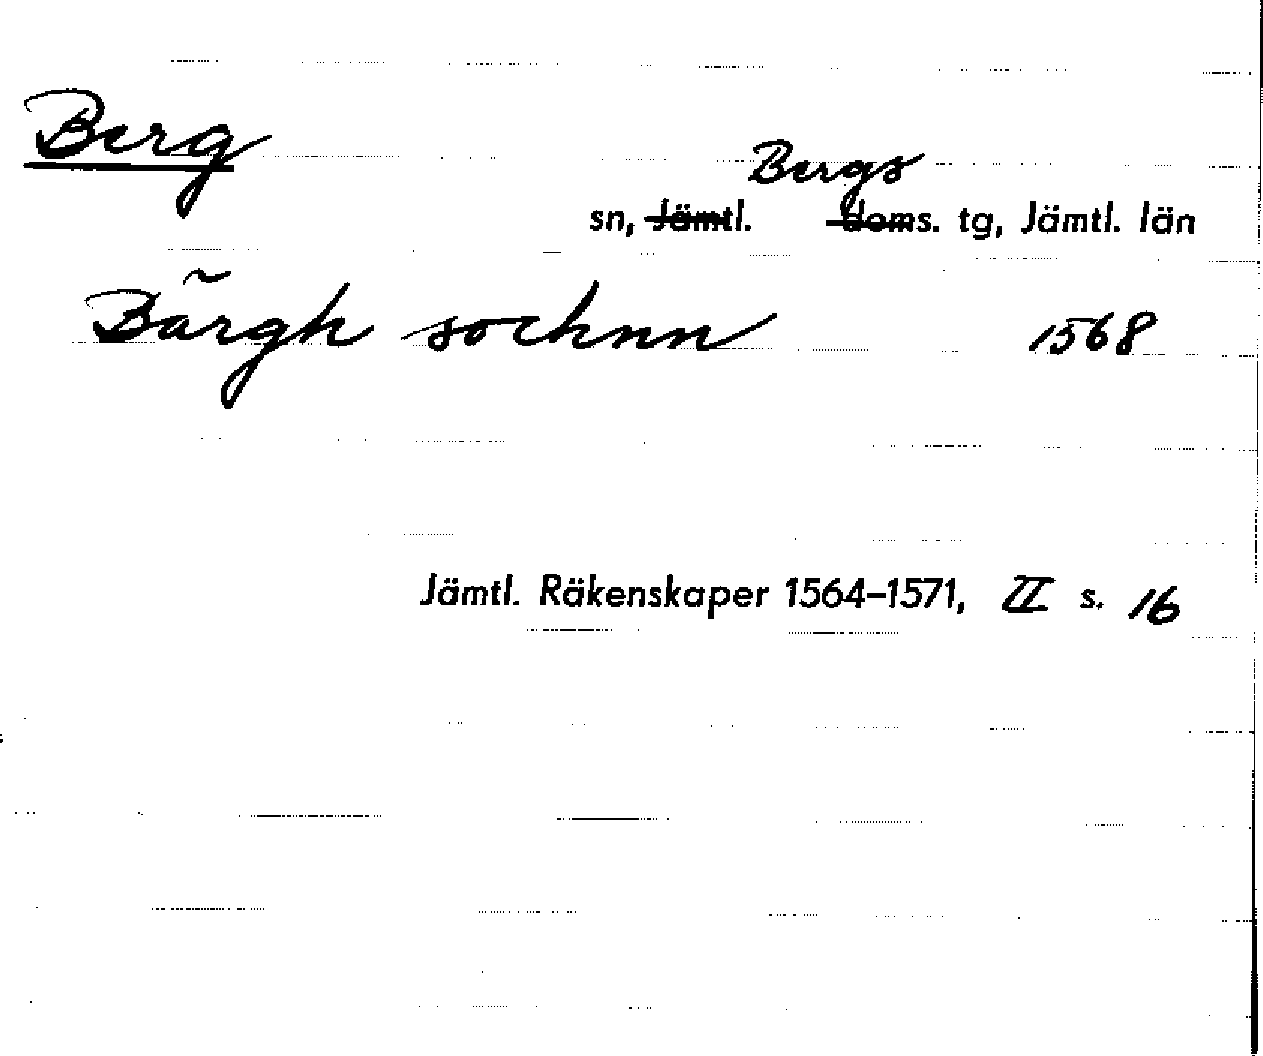 Berg
Bergs
sn, Jämtl. doms. tg, Jämtl. län
Bärgh sochnn 1568
Jämtl. Räkenskaper 1564–1571, II s. 16